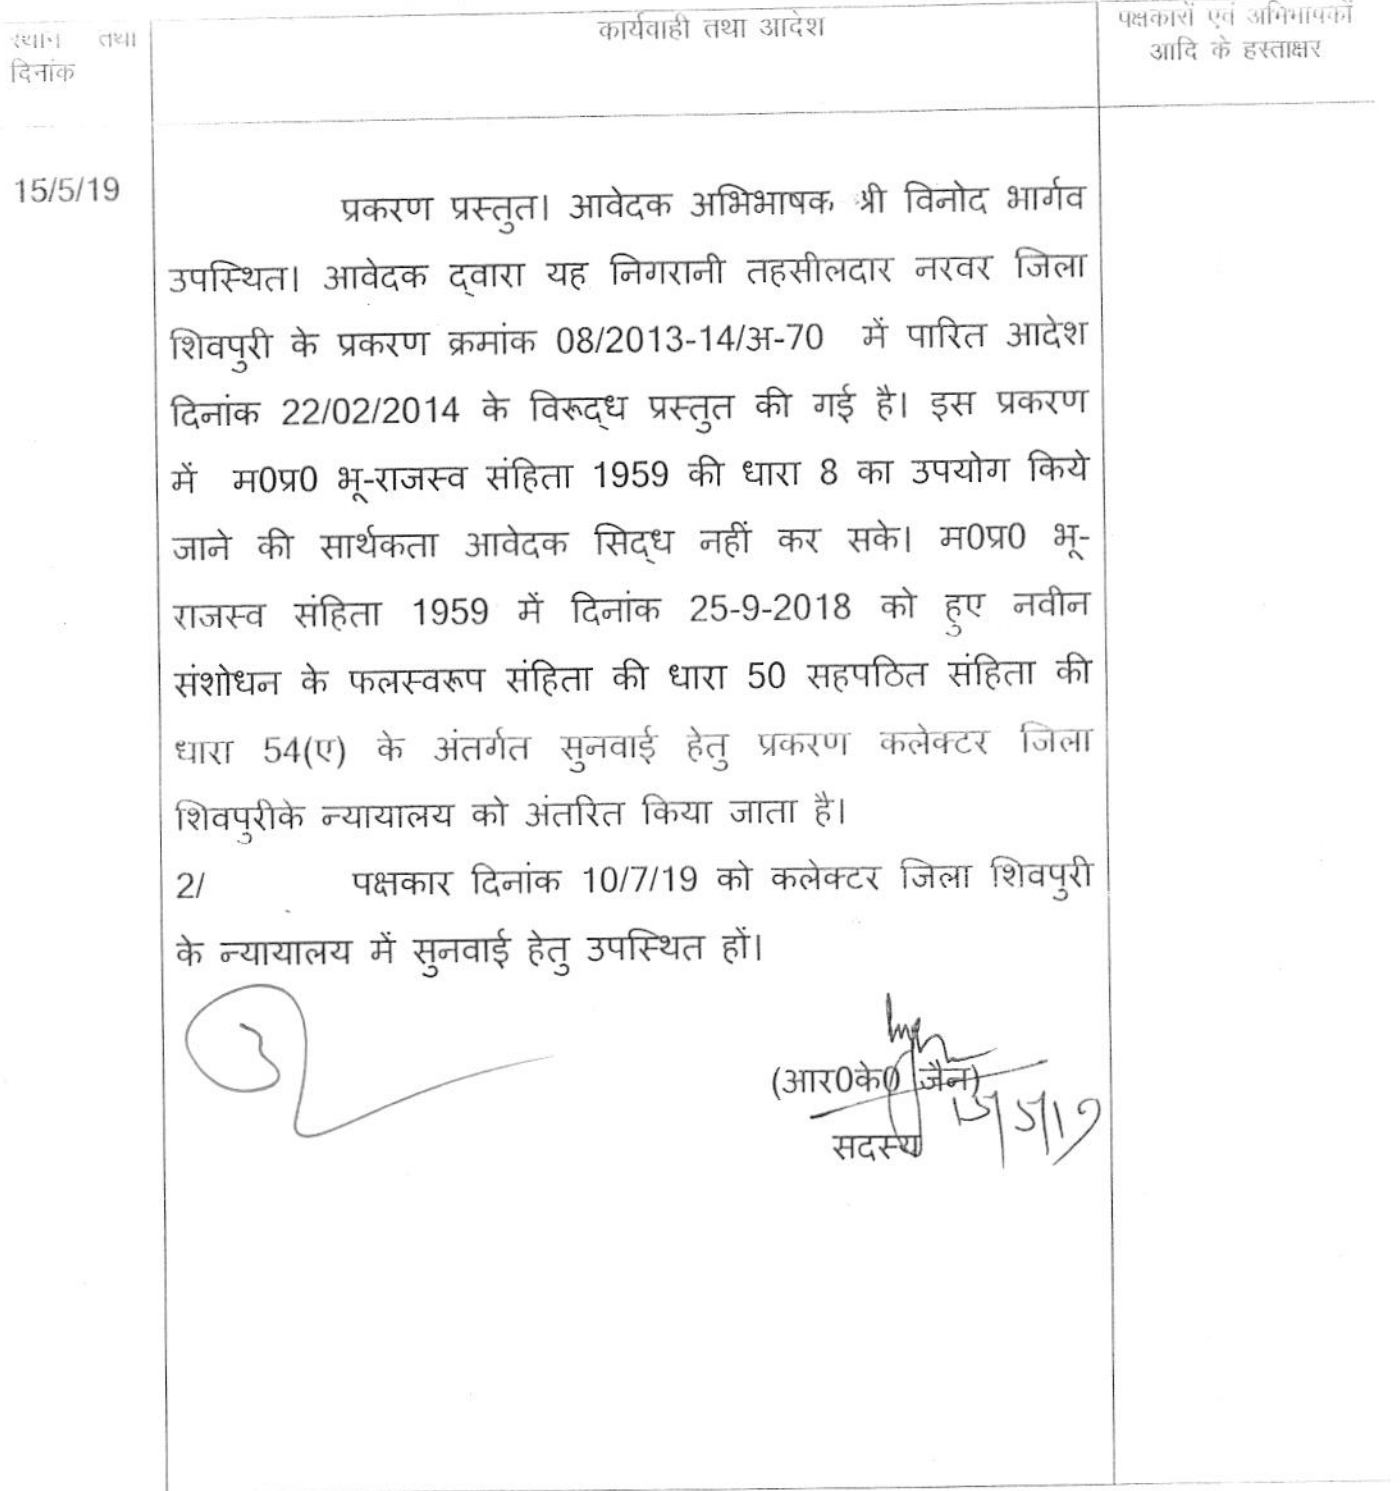 स्थान तथा
दिनांक
कार्यवाही तथा आदेश
पक्षकारों एवं अभिभाषकों
आदि के हस्ताक्षर
15/5/19
प्रकरण प्रस्तुत। आवेदक अभिभाषक श्री विनोद भार्गव
उपस्थित। आवेदक द्वारा यह निगरानी तहसीलदार नरवर जिला
शिवपुरी के प्रकरण क्रमांक 08/2013-14/अ-70 में पारित आदेश
दिनांक 22/02/2014 के विरूद्ध प्रस्तुत की गई है। इस प्रकरण
में म0प्र0 भू-राजस्व संहिता 1959 की धारा 8 का उपयोग किये
जाने की सार्थकता आवेदक सिद्ध नहीं कर सके। म0प्र0 भू-
राजस्व संहिता 1959 में दिनांक 25-9-2018 को हुए नवीन
संशोधन के फलस्वरूप संहिता की धारा 50 सहपठित संहिता की
धारा 54(ए) के अंतर्गत सुनवाई हेतु प्रकरण कलेक्टर जिला
शिवपुरीके न्यायालय को अंतरित किया जाता है।
2/ पक्षकार दिनांक 10/7/19 को कलेक्टर जिला शिवपुरी
के न्यायालय में सुनवाई हेतु उपस्थित हों।
(आर0के0 जैन)
15/5/19
सदस्य